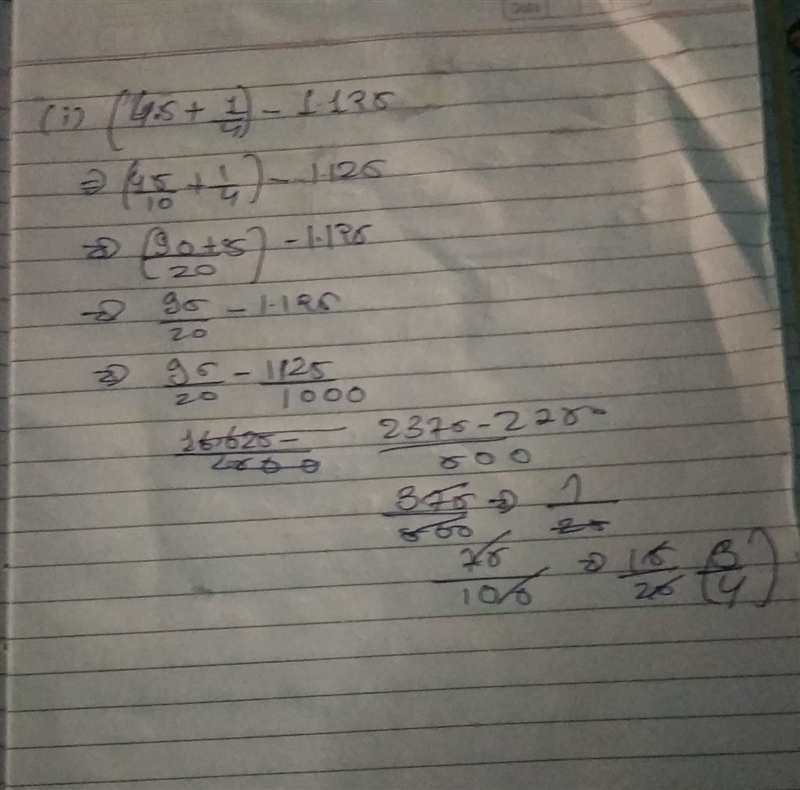 (i) (4.5 + 1/4) - 1.125
⇒ (45/10 + 1/4) - 1.125
⇒ (90+5/20) - 1.125
⇒ 95/20 - 1.125
⇒ 95/20 - 1125/1000
2375 - 2250/500
375/500 ⇒ 1
75/100 ⇒ 15/25 (3/4)